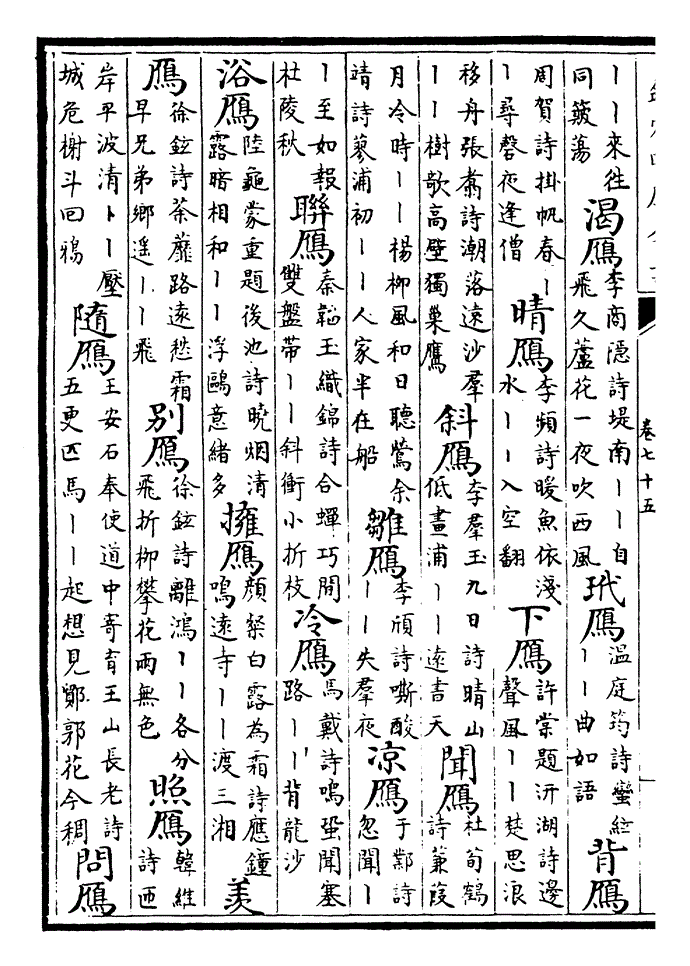 卷七十五
丨丨來往
同籔蕩
渴鴈
李商隠詩堤南丨丨自
飛久蘆花一夜吹西風
玳鴈
温庭筠詩蠻絃
丨丨曲如語
背鴈
周賀詩掛帆春丨
丨尋磬夜逢僧
晴鴈
李頻詩暖魚依淺
水丨丨入空翻
下鴈
許棠題沂湖詩邊
聲風丨丨楚思浪
移舟張喬詩潮落遠沙羣
丨丨樹欹高壁獨巢鷹
斜鴈
李羣玉九日詩晴山
低畫浦丨丨遠書天
聞鴈
杜荀鶴
詩蒹葭
月冷時丨丨楊柳風和日聽鶯余
靖詩蓼浦初丨丨人家半在船
雛鴈
李頎詩嘶酸
丨丨失羣夜
凉鴈
于鄴詩
忽聞丨
丨至如報
杜陵秋
聯鴈
秦韜玉織錦詩合蟬巧間
雙盤帶丨丨斜衝小折枝
冷鴈
馬戴詩鳴蛩聞塞
路丨丨背龍沙
浴鴈
陸龜蒙重題後池詩曉烟清
露暗相和丨丨浮鷗意緒多
擁鴈
顔粲白露為霜詩應鐘
鳴遠寺丨丨渡三湘
羡
鴈
徐鉉詩荼蘼路遠愁霜
早兄弟鄉遥丨丨飛
別鴈
徐鉉詩離鴻丨丨各分
飛折柳攀花兩無色
照鴈
韓維
詩迊
岸平波清卜丨壓
城危榭斗回鴉
隨鴈
王安石奉使道中寄育王山長老詩
五更匹馬丨丨起想見鄮郭花今稠
問鴈